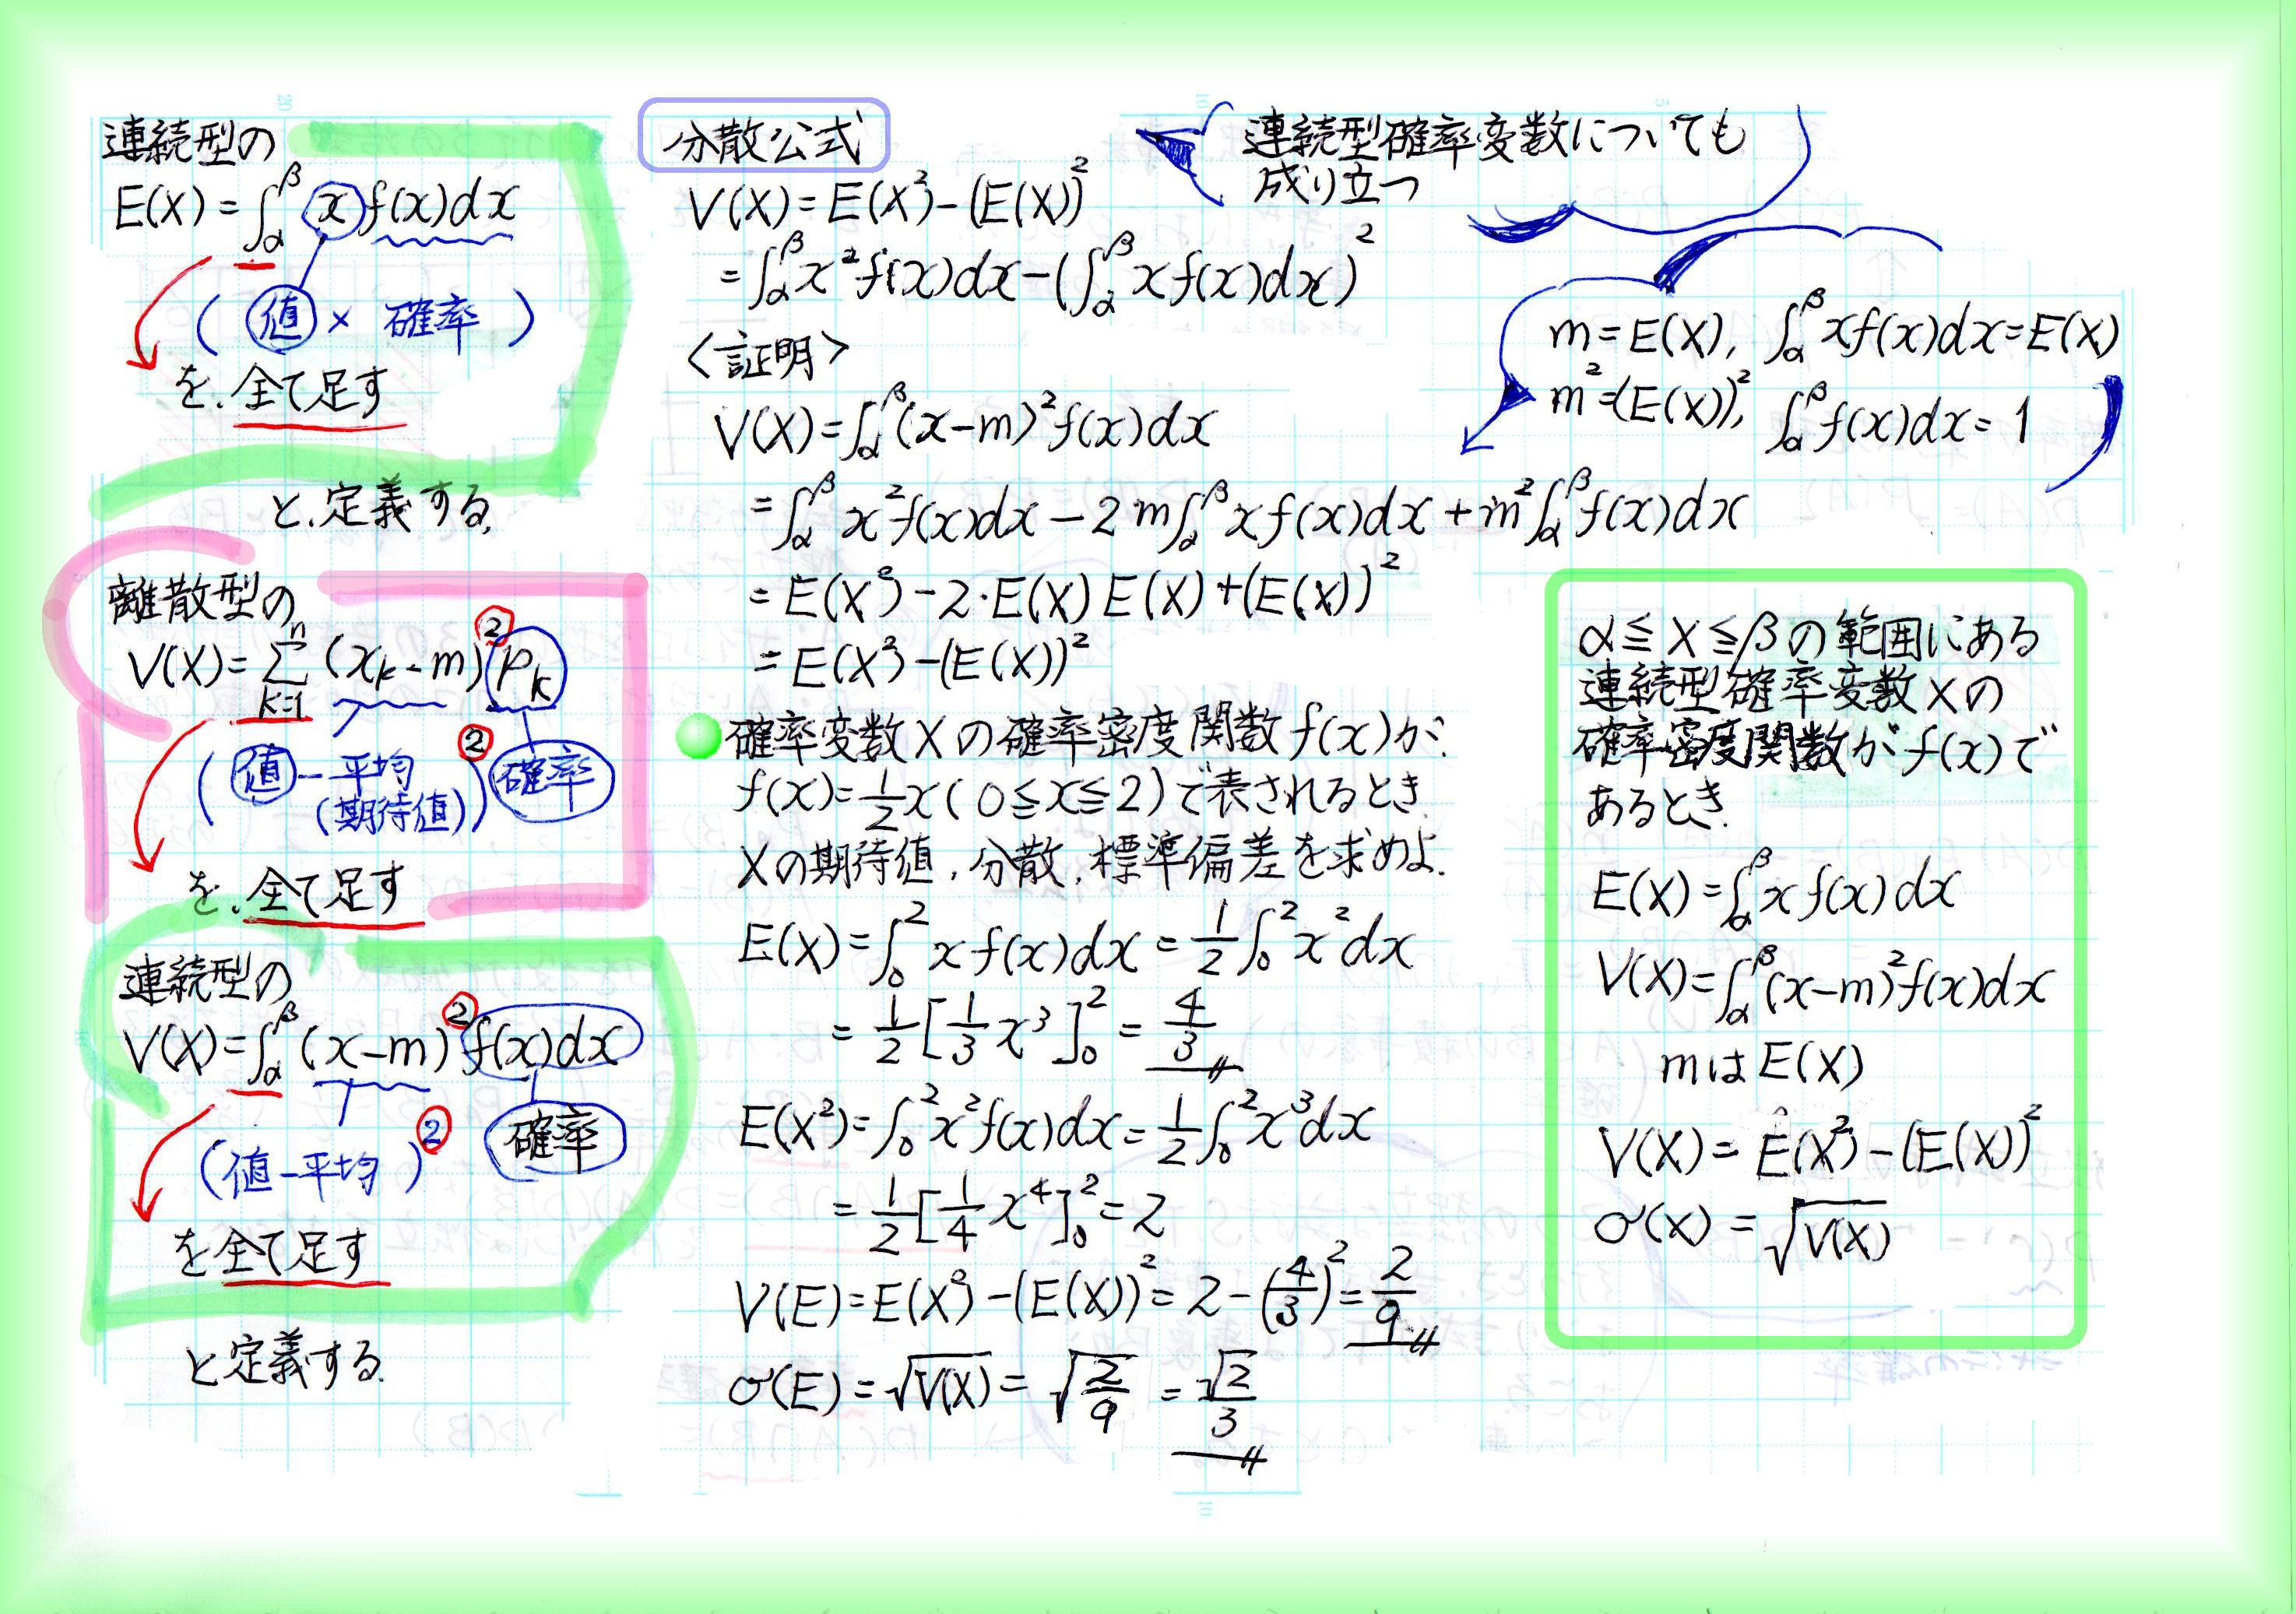 連続型の
E(X)=∫_α^β x f(x)dx
(値 × 確率)
を、全て足す
と、定義する。
離散型の
V(X)=Σ_{k=1}^n (x_k-m)² p_k
(値-平均(期待値))² 確率
を、全て足す
連続型の
V(X)=∫_α^β (x-m)² f(x)dx
(値-平均)² 確率
を全て足す
と定義する。
分散公式
V(X)=E(X²)-(E(X))²
=∫_α^β x²f(x)dx-(∫_α^β xf(x)dx)²
連続型確率変数についても
成り立つ
<証明>
V(X)=∫_α^β (x-m)²f(x)dx
m=E(X), ∫_α^β xf(x)dx=E(X)
m²=(E(X))², ∫_α^β f(x)dx=1
=∫_α^β x²f(x)dx-2m∫_α^β xf(x)dx+m²∫_α^β f(x)dx
=E(X²)-2・E(X)E(X)+(E(X))²
=E(X²)-(E(X))²
確率変数Xの確率密度関数f(x)が、
f(x)=1/2 x(0≦x≦2)で表されるとき、
Xの期待値、分散、標準偏差を求めよ。
E(X)=∫_0^2 x f(x)dx=1/2∫_0^2 x²dx
=1/2[1/3 x³]_0^2=4/3
E(X²)=∫_0^2 x²f(x)dx=1/2∫_0^2 x³dx
=1/2[1/4 x⁴]_0^2=2
V(E)=E(X²)-(E(X))²=2-(4/3)²=2/9
σ(E)=√V(X)=√(2/9)=√2/3
α≦X≦βの範囲にある
連続型確率変数Xの
確率密度関数がf(x)で
あるとき、
E(X)=∫_α^β x f(x)dx
V(X)=∫_α^β (x-m)²f(x)dx
mはE(X)
V(X)=E(X²)-(E(X))²
σ(x)=√V(X)